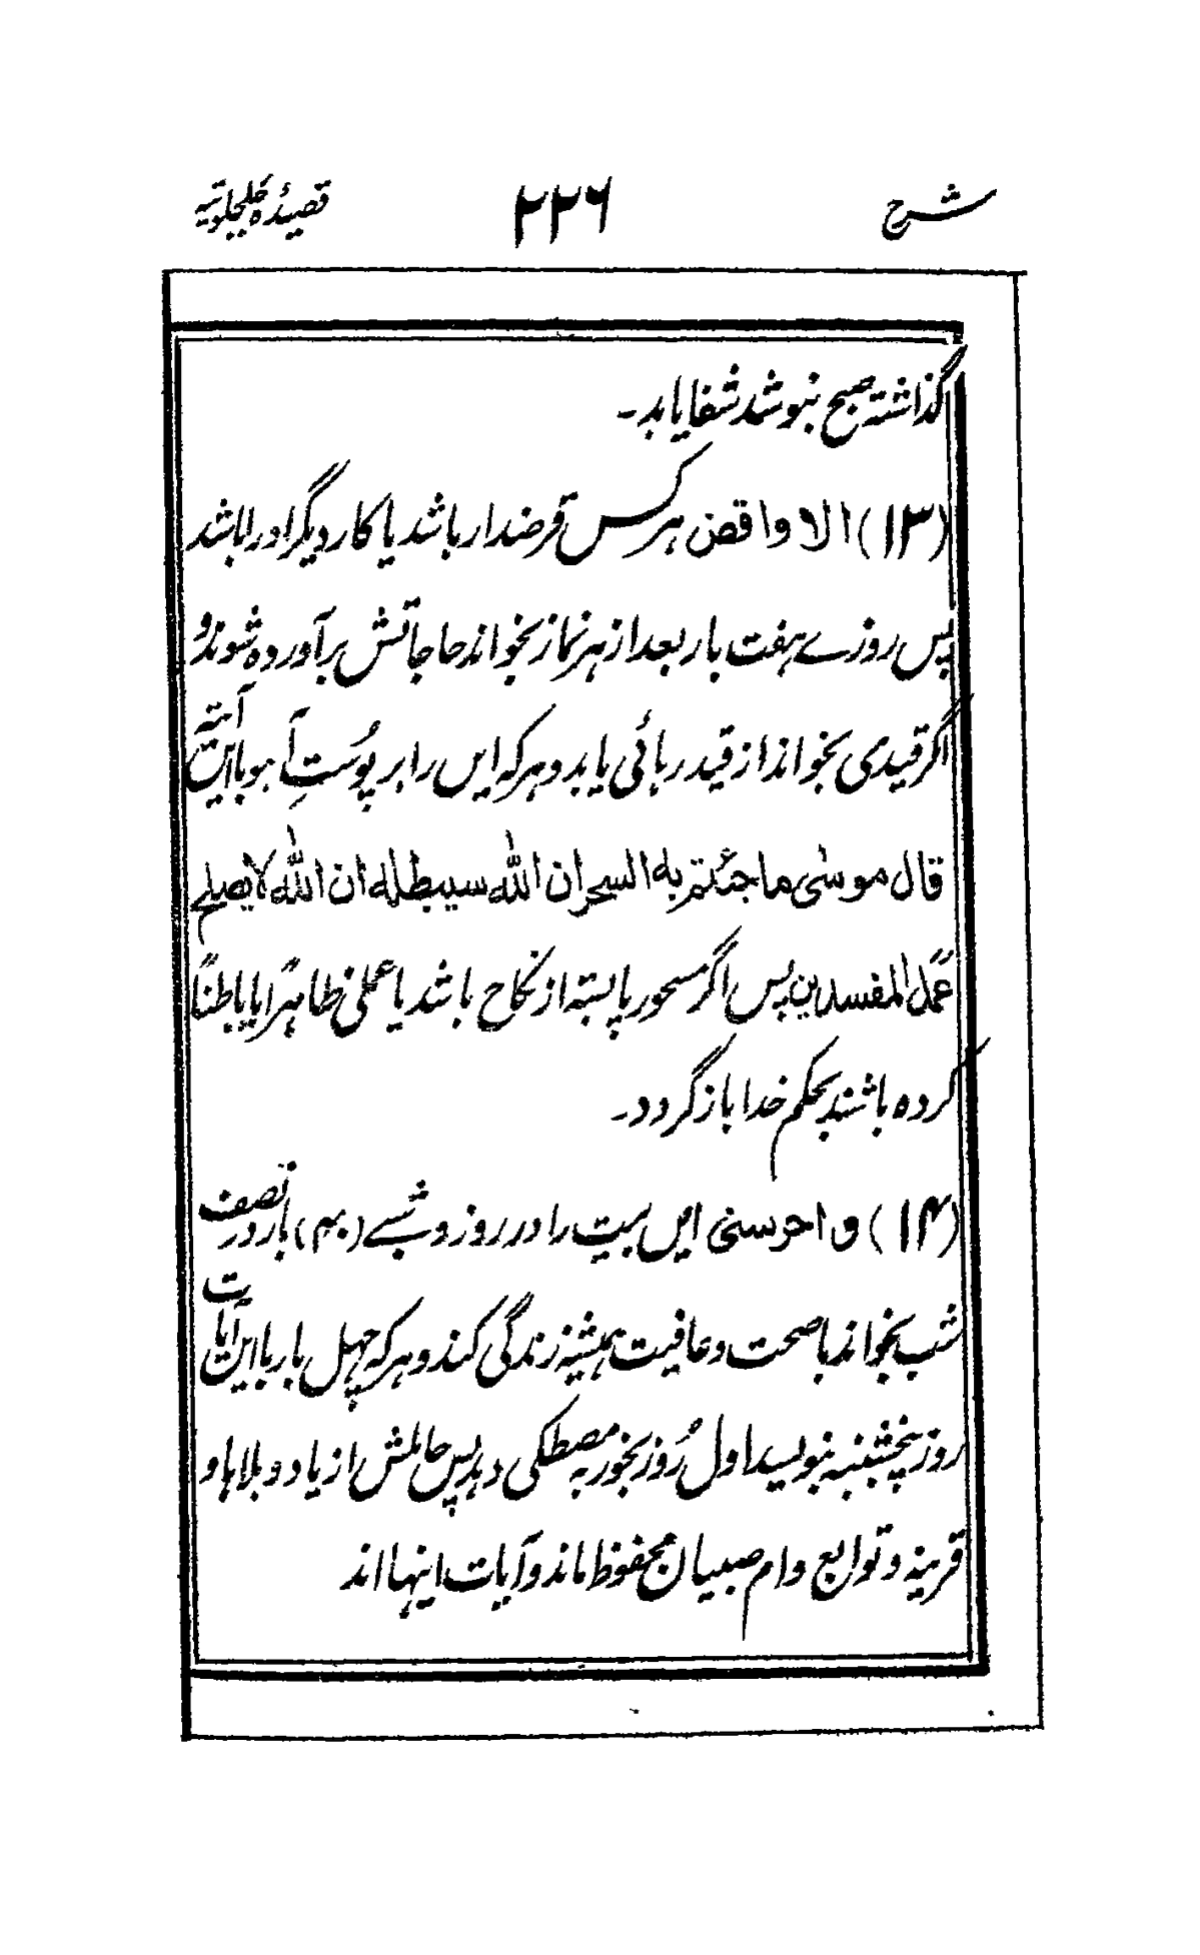 شرح ۲۲۶ قصیدۂ جلجلوتیه
گذاشته صبح بنوشد شفا یابد۔
(۱۳) الا واقض هر کس قرضدار باشد یا کار دیگر او را باشد
پس روزے هفت بار بعد از هر نماز بخواند حاجاتش برآورده شوند و
اگر قیدی بخواند از قید رہائی یابد و هرکه ایں را بر پوُستِ آہو باایں آیته
قال موسٰی ما جئتم به السحر ان اللّٰه سیبطله ان اللّٰه لا یصلح
عَمَل المفسدین پس اگر مسحور یا بسته از نکاح باشد یا عملی ظاہرًا یا باطنًا
کرده باشند بحکم خدا باز گردد۔
(۱۴) و احرسنی ایں بیت را در روز و شبے (۴۰) بار و در نصف
شب بخواند با صحت و عافیت ہمیشه زندگی کند و هرکه چهل بار باایں آیات
روز پنچشنبه بنویسد اول رُوز بخور به مصطکی دهد پس حاملش از یاد و بلاها و
قرینه و توابع و ام صبیان محفوظ ماند و آیات اینها اند